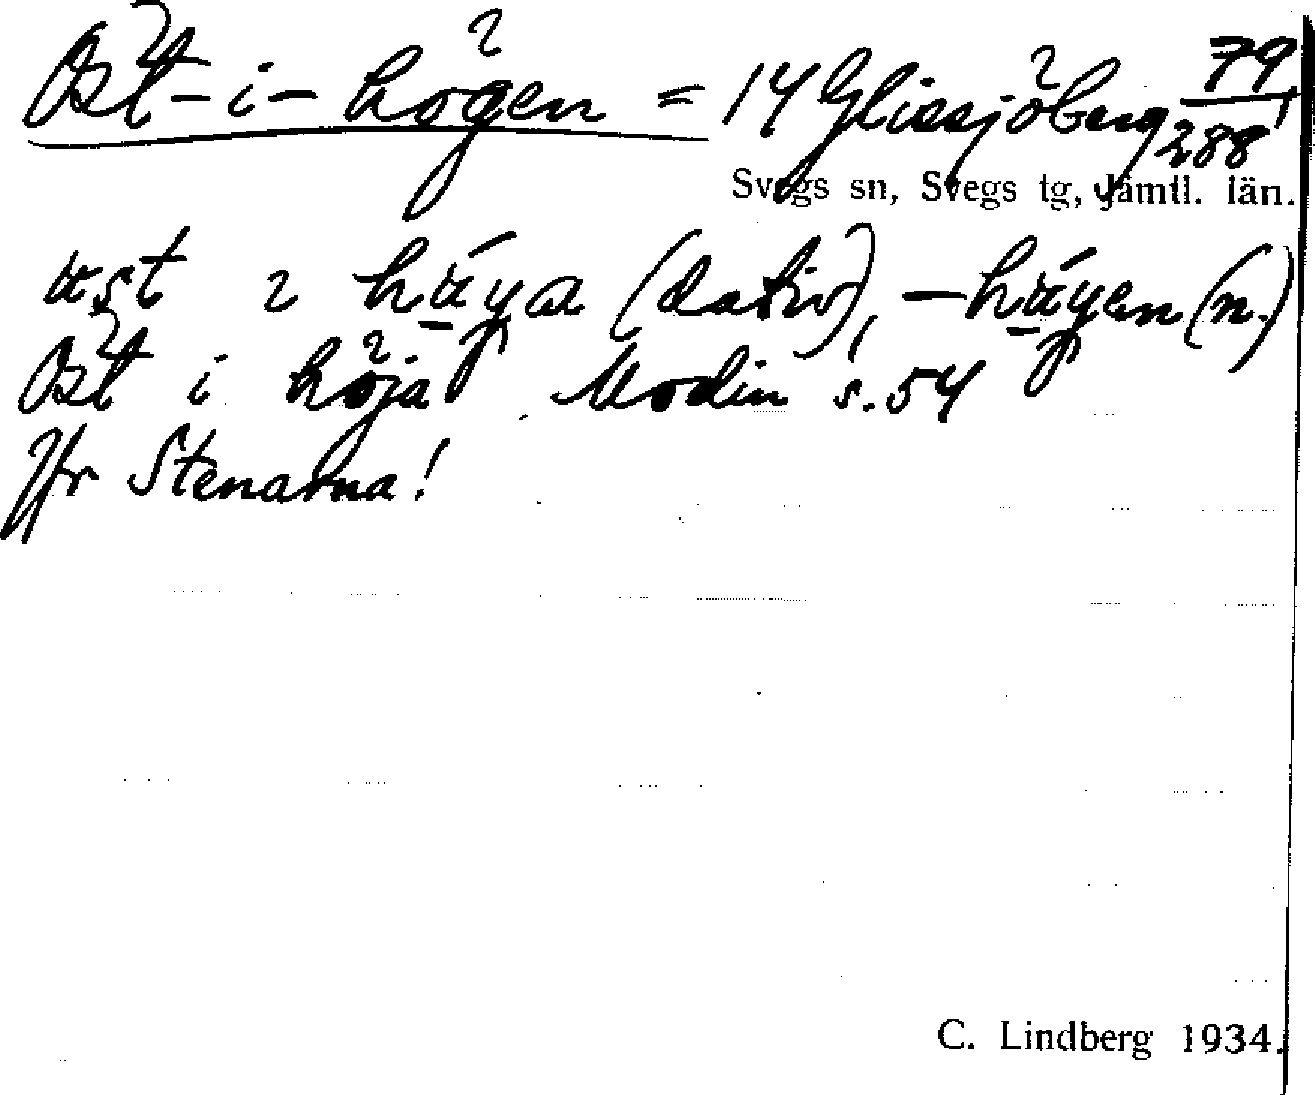 Öst-i-högen = 14 Glissjöberg 79/288
Svegs sn, Svegs tg, Jämtl. län.
öst i höja Modin s. 54
Jfr Stenarna!
C. Lindberg 1934.